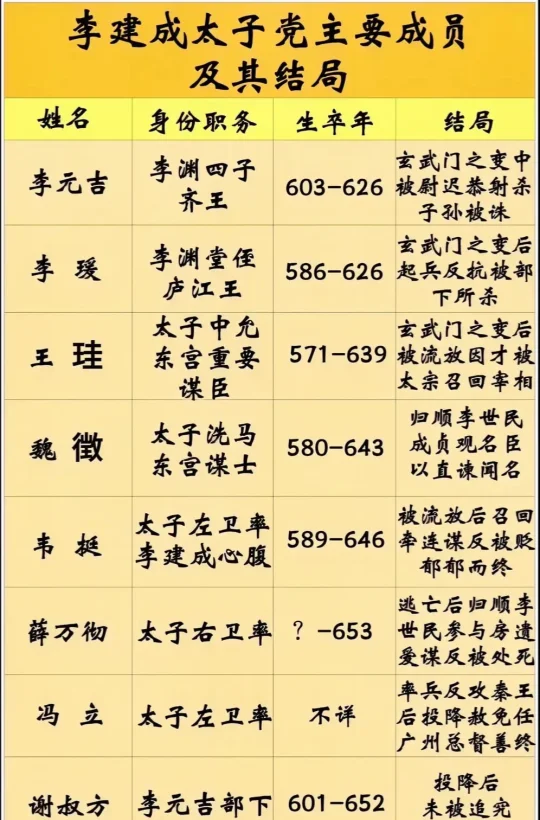 李建成太子党主要成员
及其结局
姓名 身份职务 生卒年 结局
李元吉
李渊四子
齐王
603-626
玄武门之变中
被尉迟恭射杀
子孙被诛
李 瑗
李渊堂侄
庐江王
586-626
玄武门之变后
起兵反抗被部
下所杀
王 珪
太子中允
东宫重要
谋臣
571-639
玄武门之变后
被流放因才被
太宗召回宰相
魏 徵
太子洗马
东宫谋士
580-643
归顺李世民
成贞观名臣
以直谏闻名
韦 挺
太子左卫率
李建成心腹
589-646
被流放后召回
牵连谋反被贬
郁郁而终
薛万彻
太子右卫率
？-653
逃亡后归顺李
世民参与房遗
爱谋反被处死
冯 立
太子左卫率
不详
率兵反攻秦王
后投降赦免任
广州总督善终
谢叔方
李元吉部下
601-652
投降后
未被追究